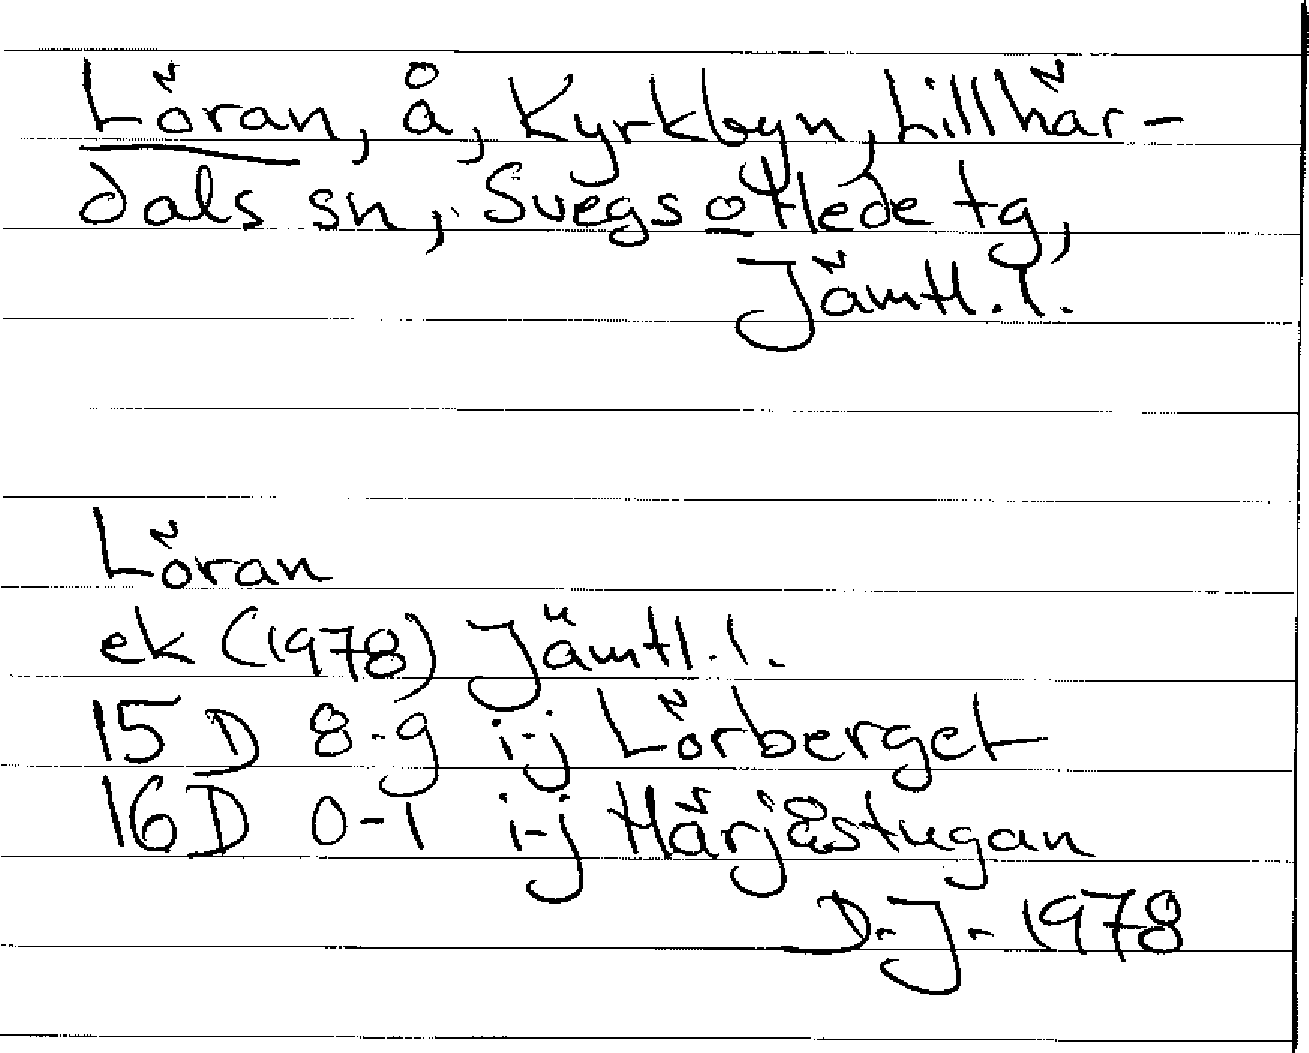 Löran, å, Kyrkbyn, Lillhär-
dals sn, Svegs o Hede tg,
Jämtl. l.
Löran
ek (1978) Jämtl. l.
15 D 8-9 i-j Lörberget
16 D 0-1 i-j Härjåstugan
D. J. 1978